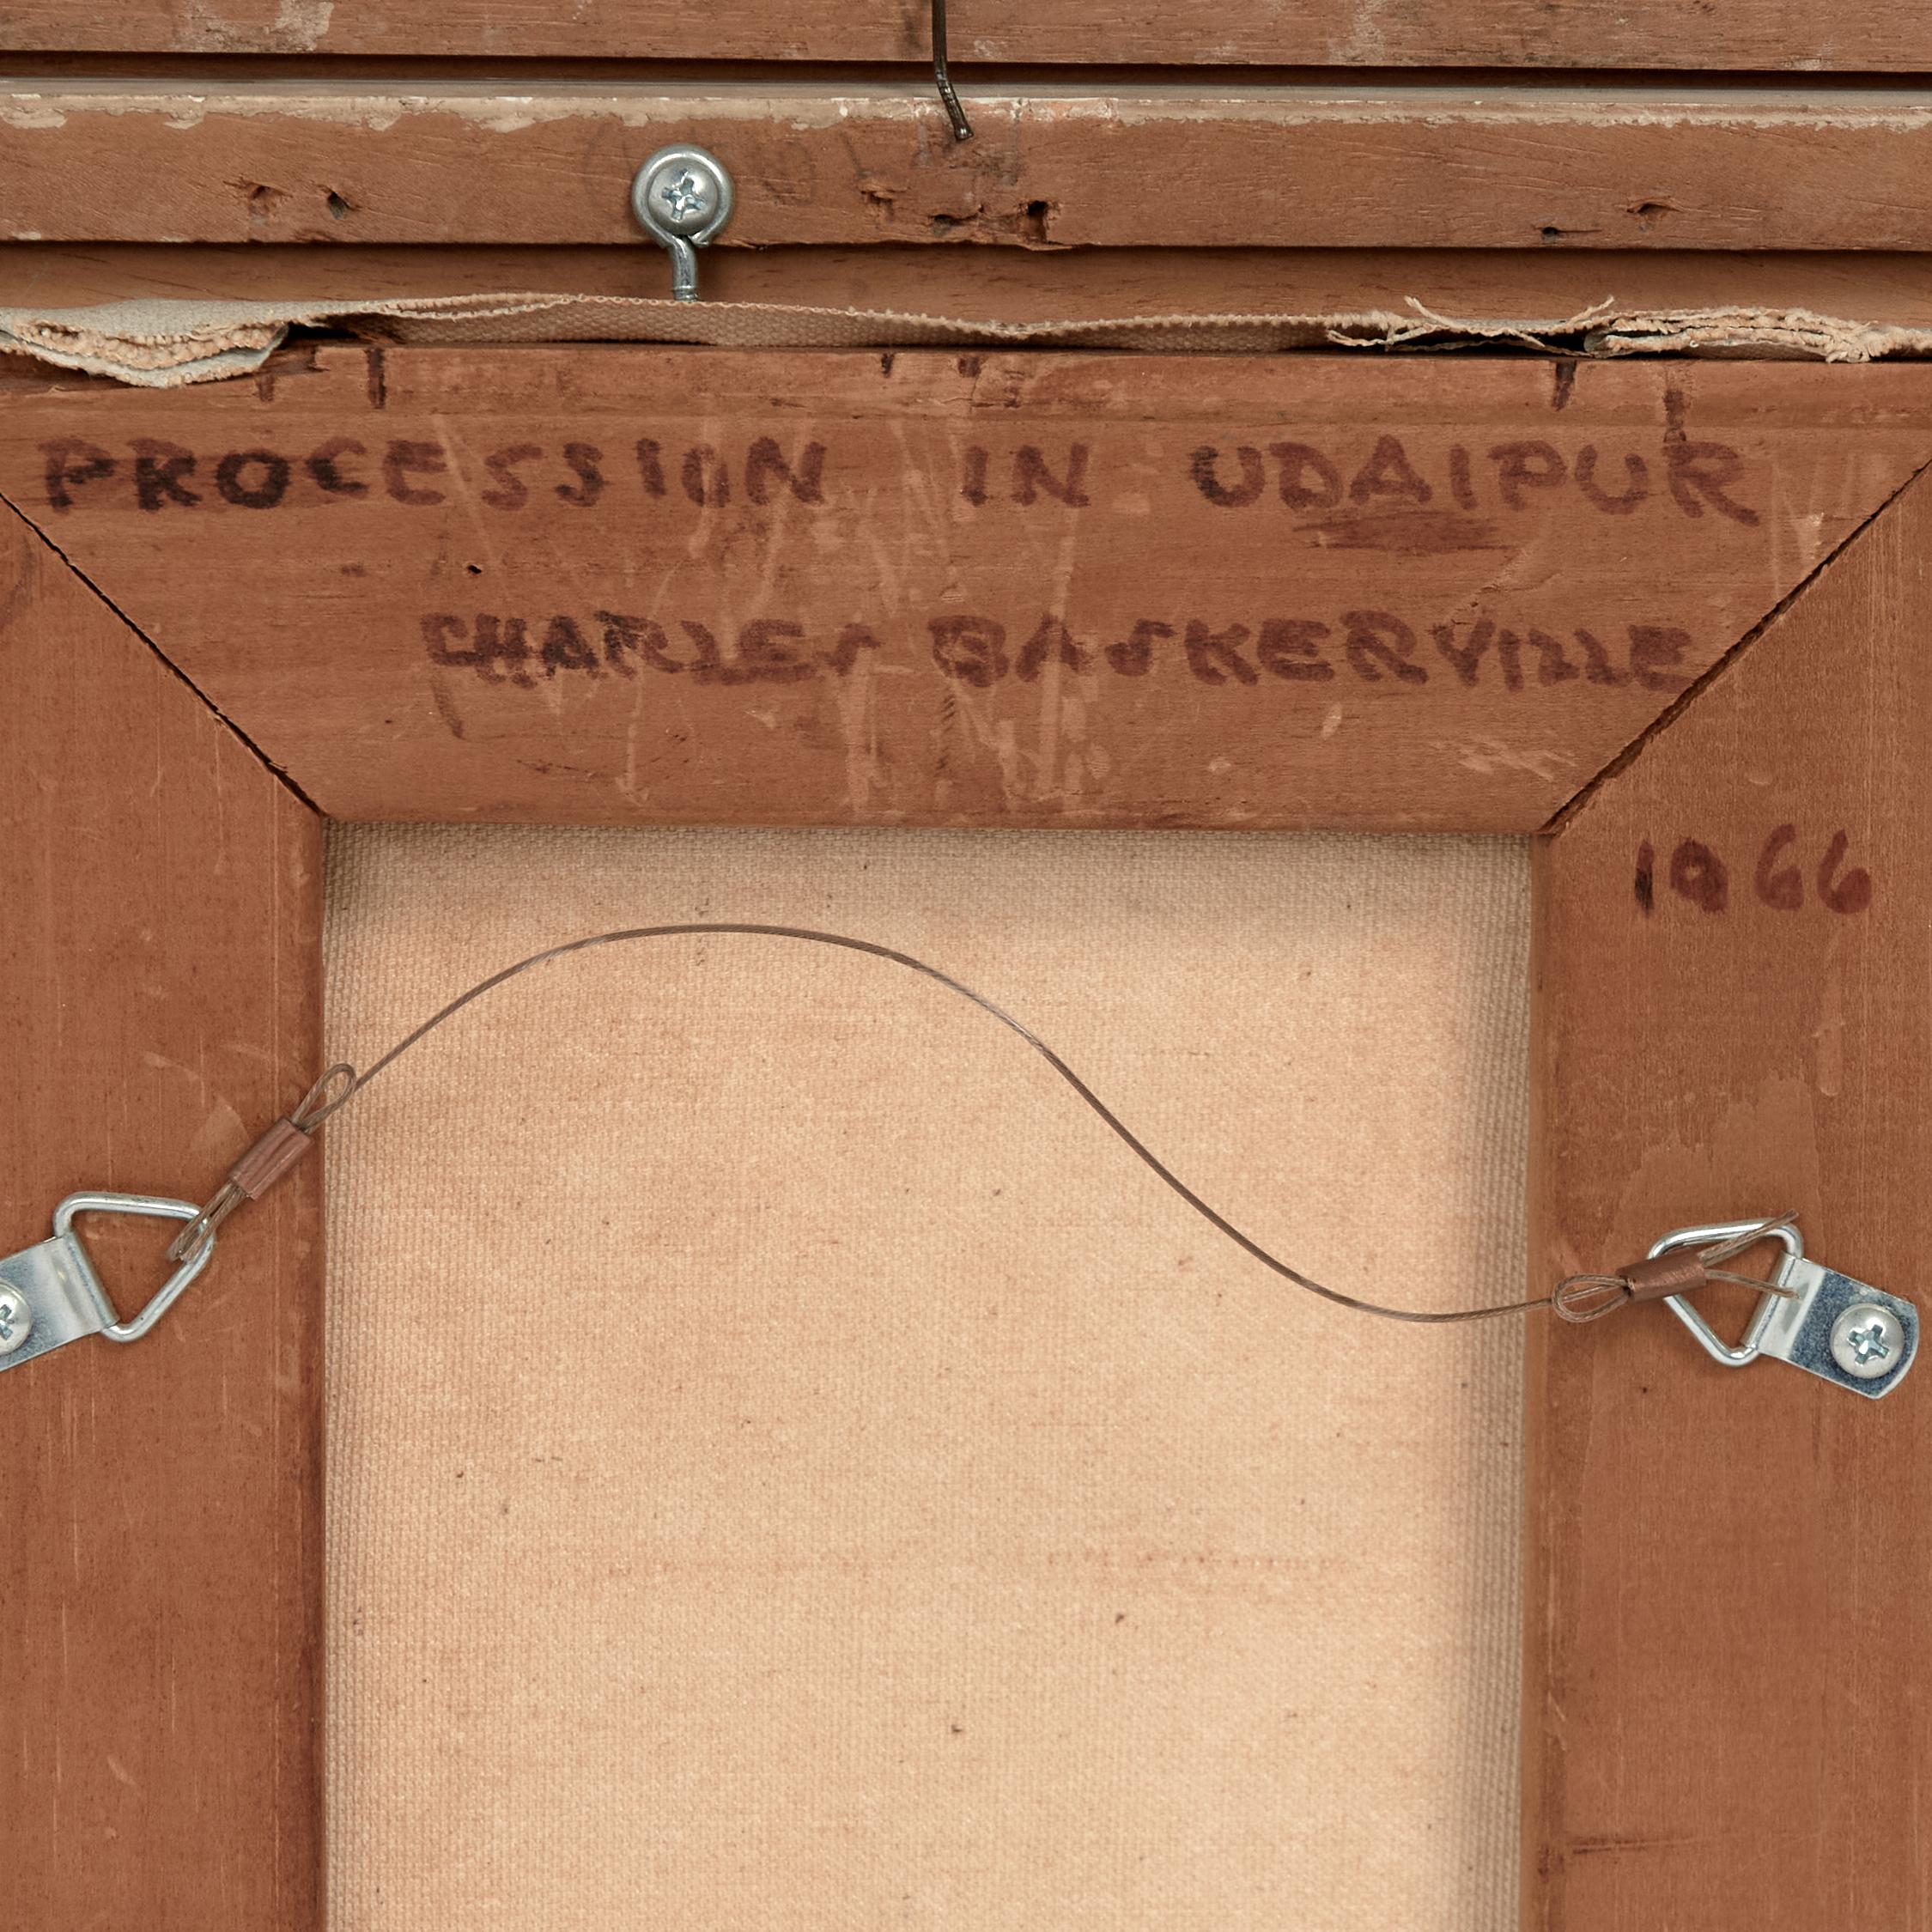 PROCESSION IN UDAIPUR
CHARLES BASKERVILLE
1966